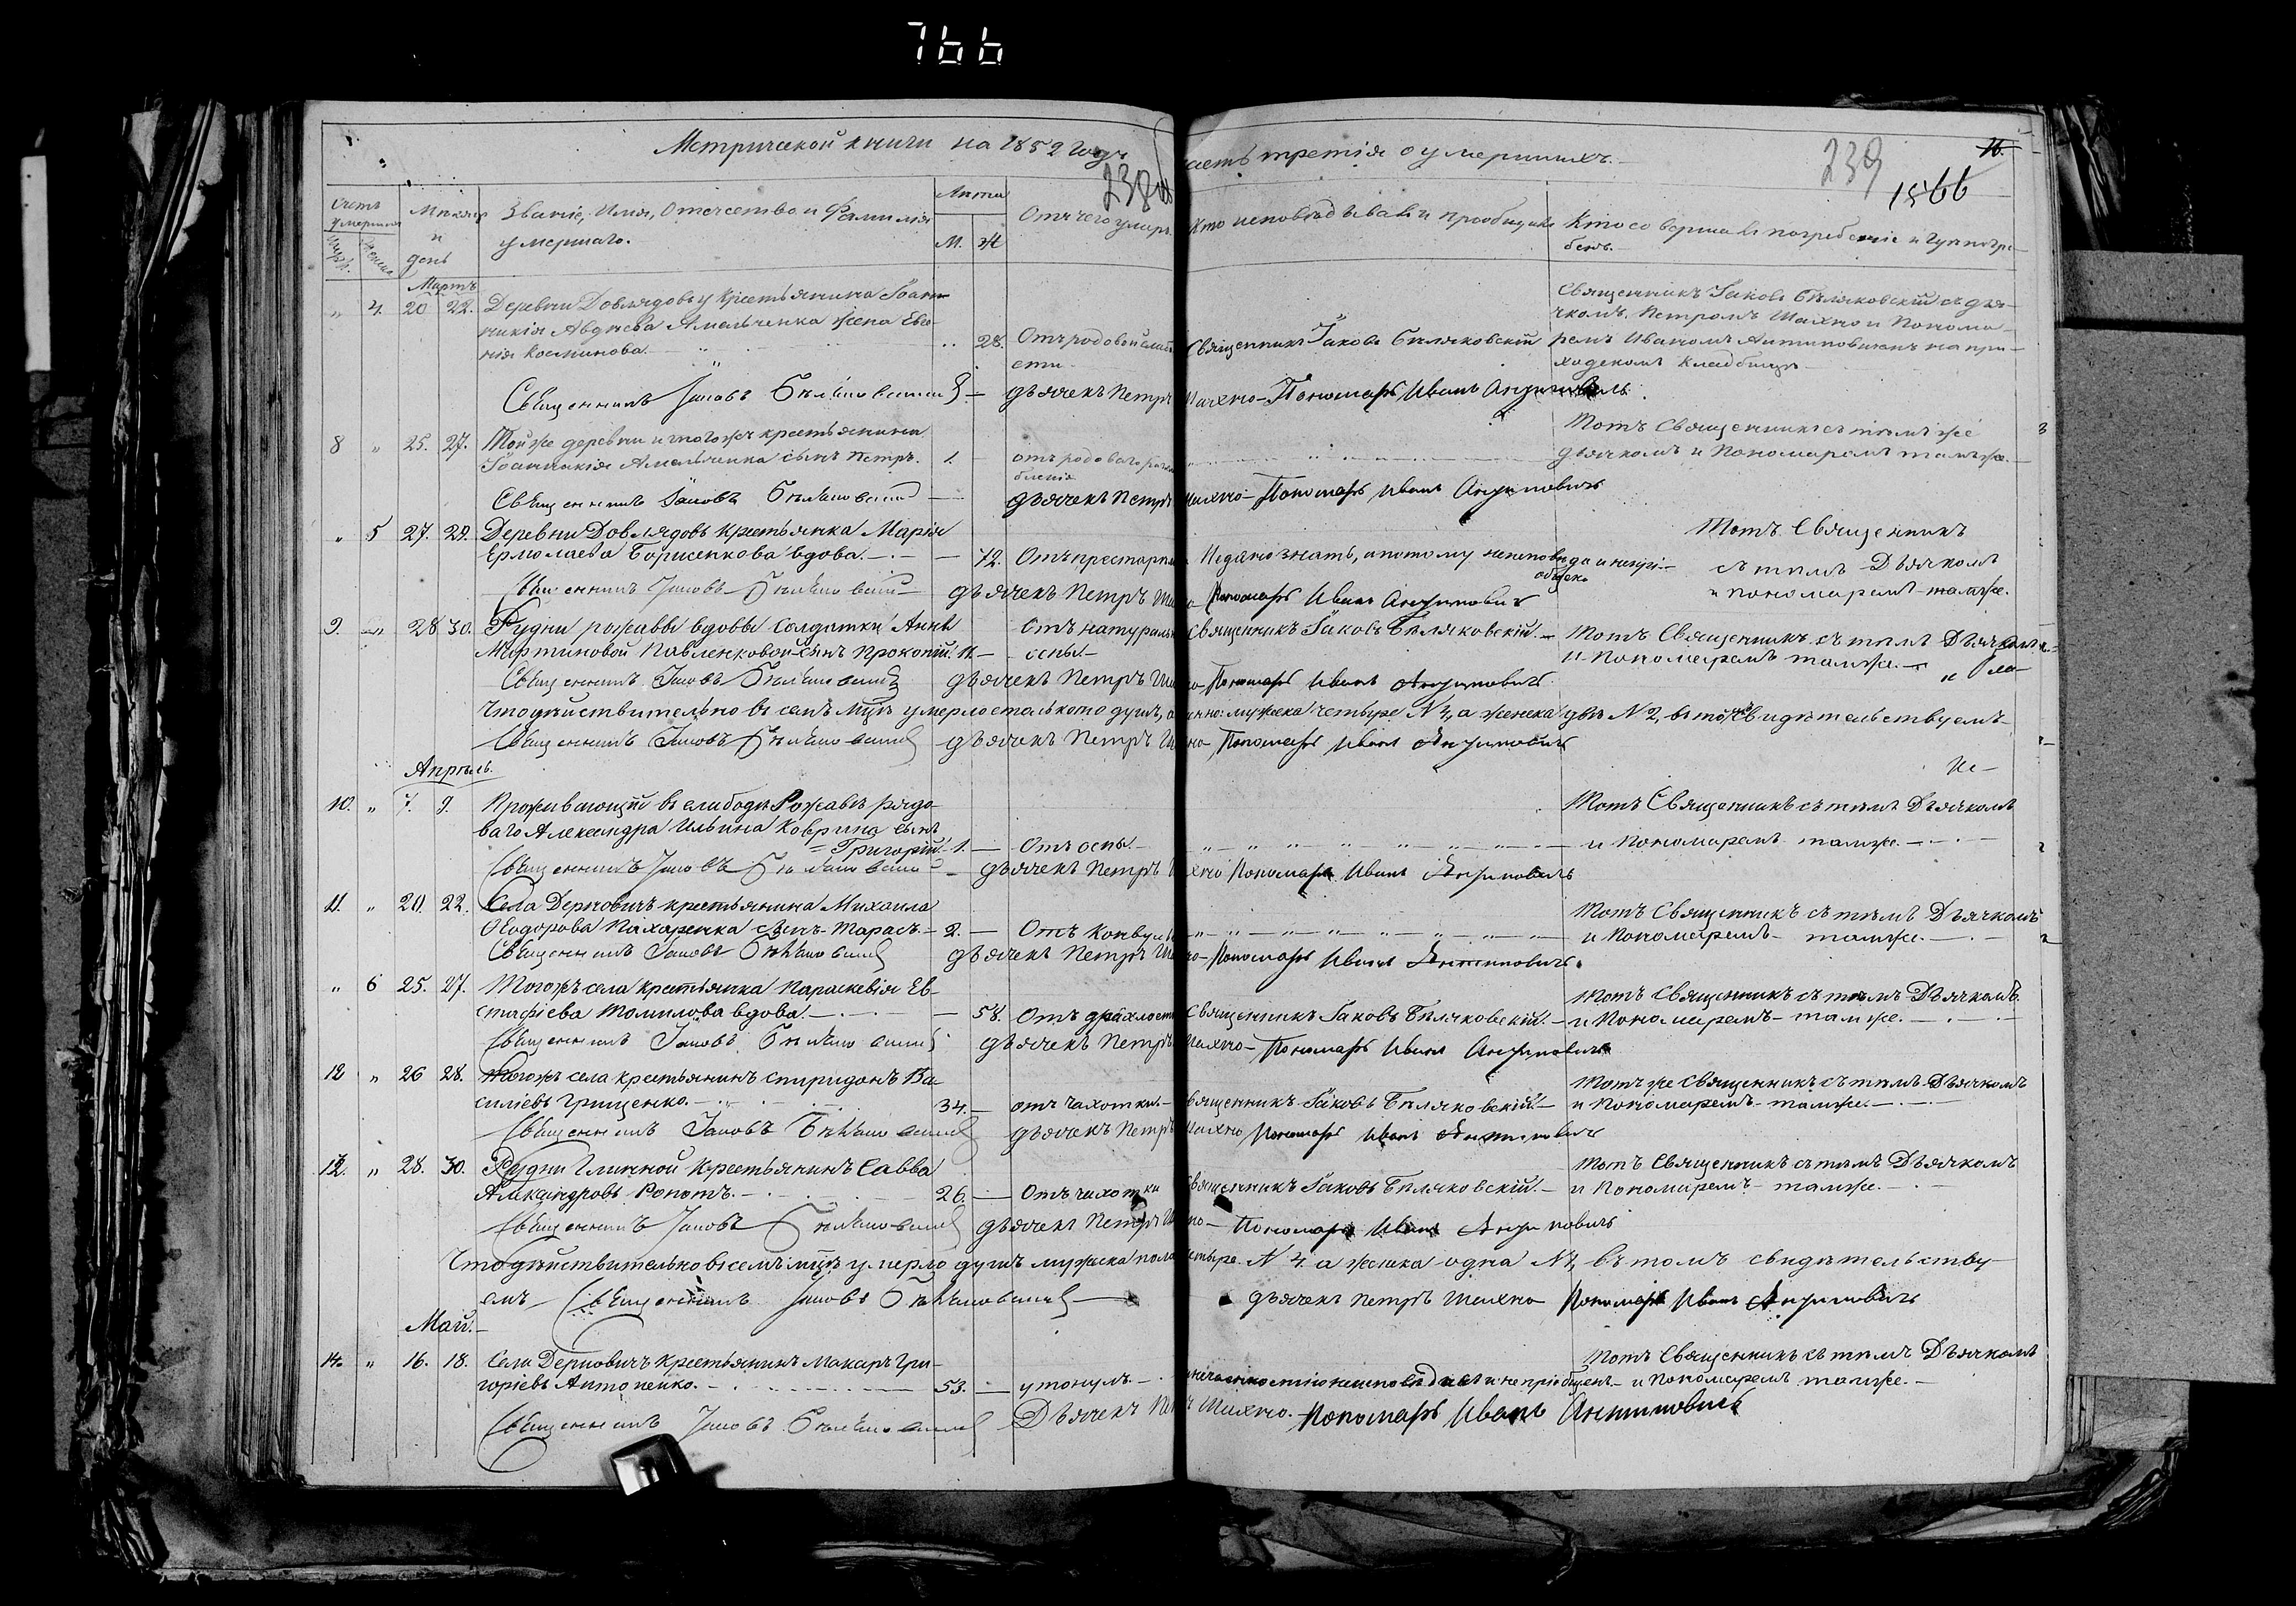 766
Метрической книги на 1852 годъ часть третія о умершихъ.
238об
239
16.
1566
Счетъ умершихъ
Мужс.
Женска
Мѣсяцъ и день
Званіе, Имя, Отечество и Фамилія умершаго.
Лѣта
М.
Ж
Отъ чего умеръ.
Кто исповѣдывалъ и пріобщалъ
Кто совершалъ погребеніе и гдѣ погребенъ.
Мартъ
„ 4. 20 22. Деревни Довлядовъ у крестьянина Іоанникія Авдѣева Амельченка жена Евгенія Косминова. 28. Отъ родовой слабости
Священникъ Іаковъ Бѣляковскій
Священникъ Іаковъ Бѣляковскій съ дьячкомъ Петромъ Шахно и Пономаремъ Иваномъ Антиповичемъ на приходскомъ кладбищѣ
Священникъ Іаковъ Бѣляковскій — дьячекъ Петръ Шахно — Пономарь Иванъ Антиповичъ
8 „ 25. 27. Той же деревни и тогожъ крестьянина Іоанникія Амельченка сынъ Петръ. 1. отъ родоваго
Тотъ Священникъ съ тѣмъ же дьячкомъ и Пономаремъ тамъже.
Священникъ Іаковъ Бѣляковскій — дьячекъ Петръ Шахно — Пономарь Иванъ Антиповичъ
„ 5 27. 29. Деревни Довлядовъ крестьянка Марія Ермолаева Борисенкова вдова. — 72. Отъ престарѣл
Недано знать, а потому неисповѣдана и непріобщена
Тотъ Священникъ съ тѣмъ Дьячкомъ и пономаремъ тамъже.
Священникъ Іаковъ Бѣляковскій — дьячекъ Петръ Шахно — Пономарь Иванъ Антиповичъ
9. „ 28 30. Рудни рожавы вдовы солдатки Анны Мартиновой Павленковой сынъ Прокопій. 11. — Отъ натуральн оспы.
Священникъ Іаковъ Бѣляковскій. —
Тотъ Священникъ съ тѣмъ Дьячкомъ и Пономаремъ тамже.
Священникъ Іаковъ Бѣляковскій дьячекъ Петръ Шахно — Пономарь Иванъ Антиповичъ
Что дѣйствительно въ семъ мцѣ умерло столькото душъ, а именно: мужска четыре № 4, а женска двѣ № 2, въ томъ свидѣтельствуемъ
Священникъ Іаковъ Бѣляковскій дьячекъ Петръ Шахно Пономарь Иванъ Антиповичъ
Апрѣль.
10. „ 7. 9. Проживающій въ слободѣ Рожавѣ рядоваго Александра Ильина Коврина сынъ Григорій. 1. — Отъ оспы. —
Тотъ Священникъ съ тѣмъ Дьячкомъ и Пономаремъ тамже. —
Священникъ Іаковъ Бѣляковскій — дьячекъ Петръ Шахно Пономарь Иванъ Антиповичъ
11. „ 20. 22. Села Дерновичъ крестьянина Михаила Ѳеодорова Пахаренка сынъ Тарасъ. — 2. — Отъ конвульс
Тотъ Священникъ съ тѣмъ Дьячкомъ и Пономаремъ — тамже. —
Священникъ Іаковъ Бѣляковскій дьячекъ Петръ Шахно — Пономарь Иванъ Антиповичъ.
„ 6 25. 27. Тогожъ села крестьянка Параскевія Евстафіева Томилова вдова. — 58. Отъ драхлости
Священникъ Іаковъ Бѣляковскій. —
Тотъ Священникъ съ тѣмъ Дьячкомъ и Пономаремъ — тамже. —
Священникъ Іаковъ Бѣляковскій дьячекъ Петръ Шахно — Пономарь Иванъ Антиповичъ
12 „ 26 28. Тогожъ села крестьянинъ Спиридонъ Василіевъ Грищенко. — 34. — отъ чахотки. —
Священникъ Іаковъ Бѣляковскій. —
Тотъ же Священникъ съ тѣмъ Дьячкомъ и Пономаремъ — тамже. —
Священникъ Іаковъ Бѣляковскій дьячекъ Петръ Шахно Пономарь Иванъ Антиповичъ
13. „ 28. 30. Рудни Глинной крестьянинъ Савва Александровъ Ропотъ. — 26. — Отъ чахотки
Священникъ Іаковъ Бѣляковскій. —
Тотъ Священникъ съ тѣмъ Дьячкомъ и Пономаремъ — тамже. —
Священникъ Іаковъ Бѣляковскій дьячекъ Петръ Шахно — Пономарь Иванъ Антиповичъ
Что дѣйствительно въ семъ мцѣ умерло душъ мужска пола четыре № 4. а женска одна № 1, въ томъ свидѣтельствуемъ — Священникъ Іаковъ Бѣляковскій — дьячекъ Петръ Шахно Пономарь Иванъ Антиповичъ
Май. —
14. „ 16. 18. Села Дерновичъ крестьянинъ Макаръ Григоріевъ Антоненко. — 53. — утонулъ. —
нечаянностію неисповѣданъ и непріобщенъ —
Тотъ Священникъ съ тѣмъ Дьячкомъ и Пономаремъ тамже. —
Священникъ Іаковъ Бѣляковскій Дьячекъ Петръ Шахно. — Пономарь Иванъ Антиповичъ